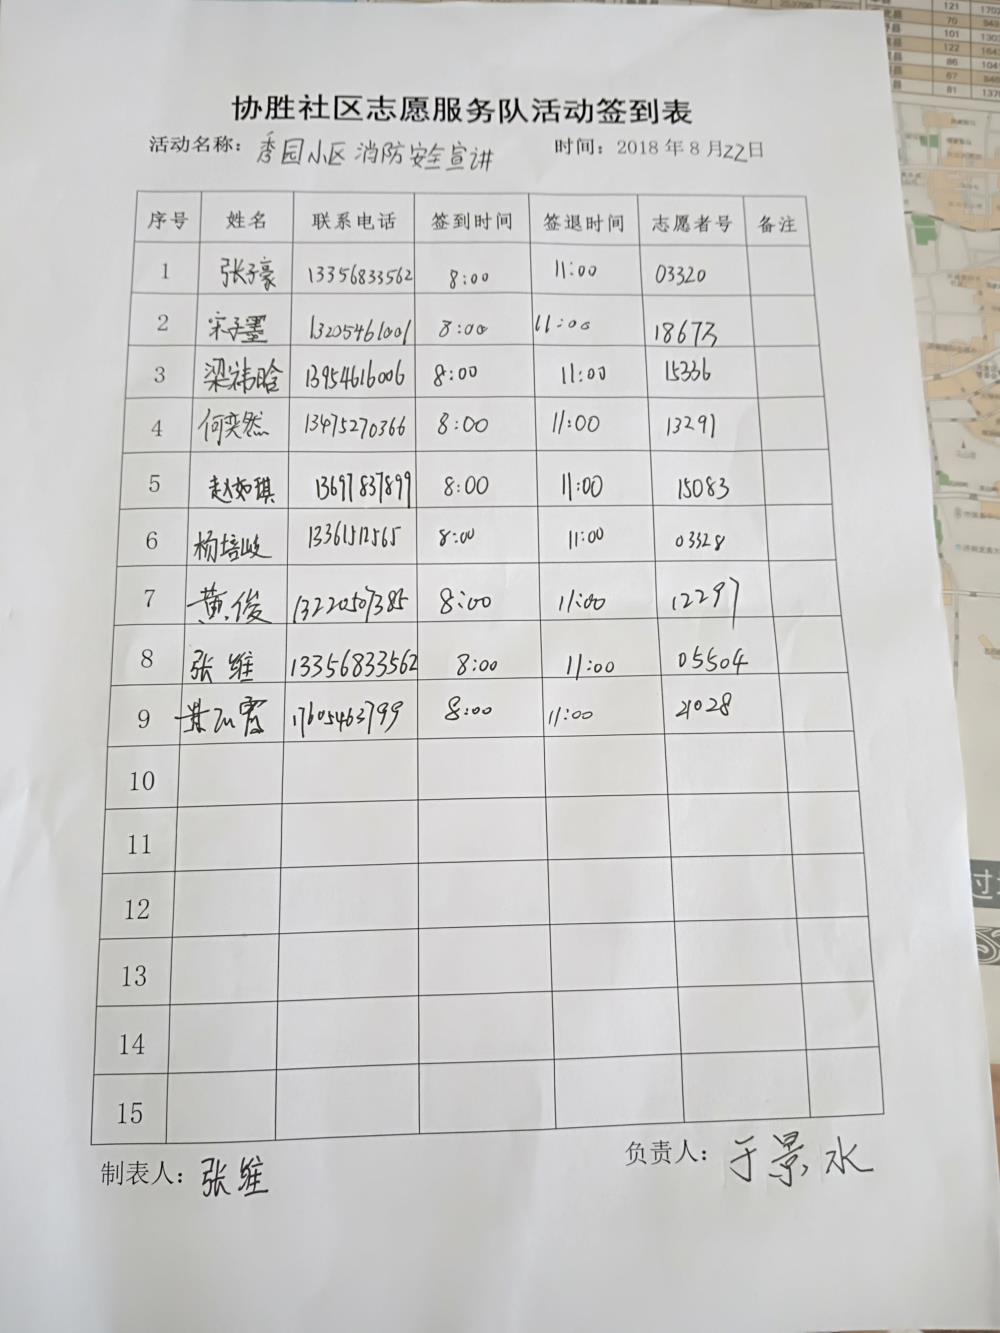 协胜社区志愿服务队活动签到表
活动名称：秀园小区消防安全宣讲 时间：2018年8月22日
序号 姓名 联系电话 签到时间 签退时间 志愿者号 备注
1 张子豪 13356833562 8:00 11:00 03320
2 宋子墨 13205461001 8:00 11:00 18673
3 梁祎晗 13954616006 8:00 11:00 15336
4 何奕然 13475270366 8:00 11:00 13291
5 赵如琪 13697837899 8:00 11:00 15083
6 杨培岐 13361512565 8:00 11:00 03328
7 黄俊 13220507385 8:00 11:00 12297
8 张维 13356833562 8:00 11:00 05504
9 17605463799 8:00 11:00 21028
10
11
12
13
14
15
制表人：张维 负责人：于景水